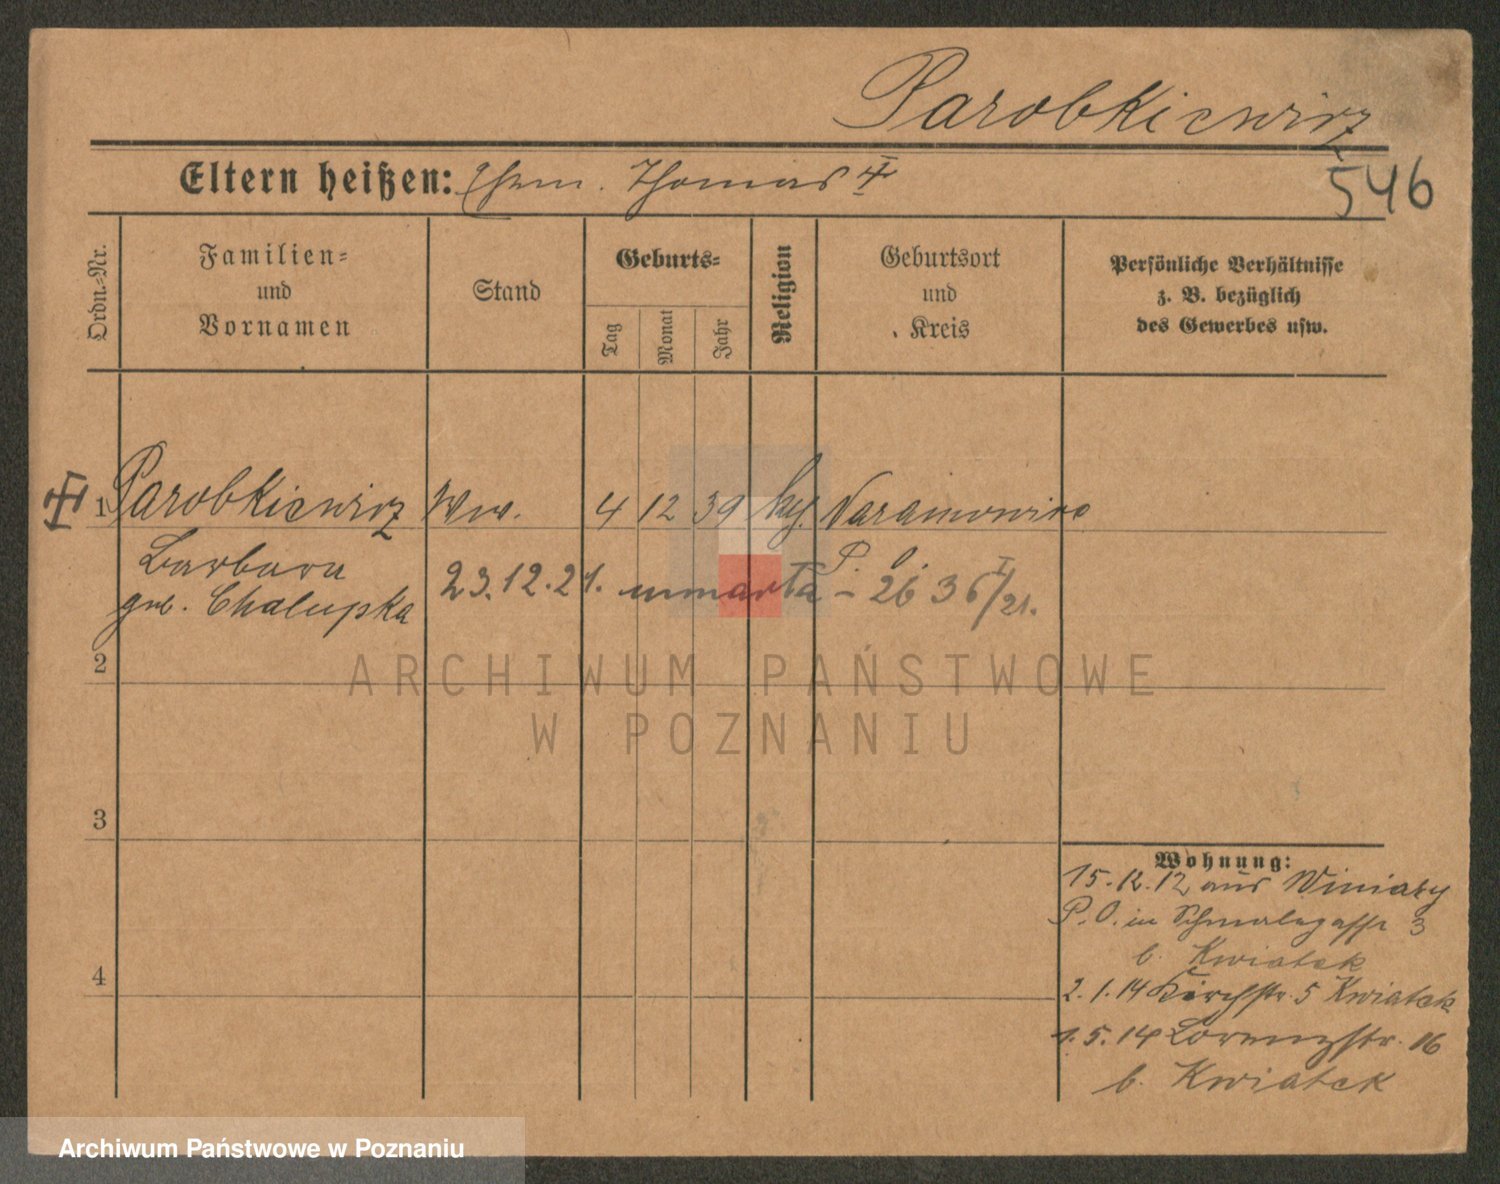 Parobkiewicz
546
Eltern heißen: Ehem. Thomas
Ordn.-Nr.
Familien- und Vornamen
Stand
Geburts-
Tag
Monat
Jahr
Religion
Geburtsort und Kreis
Persönliche Verhältnisse z. B. bezüglich des Gewerbes usw.
1 Parobkiewicz Ww. 4 12 39 Naramowice
Barbara P. O.
geb. Chalupka 23.12.21. umarła – 26 36 I/21.
2
3
4
Wohnung:
15.12.12 aus Winiary
P. O. in Schmalegasse 3
b. Kwiatek
2.1.14 Kirchstr. 5 Kwiatek
1.5.14 Lorenzstr. 16
b. Kwiatek
ARCHIWUM PAŃSTWOWE
W POZNANIU
Archiwum Państwowe w Poznaniu